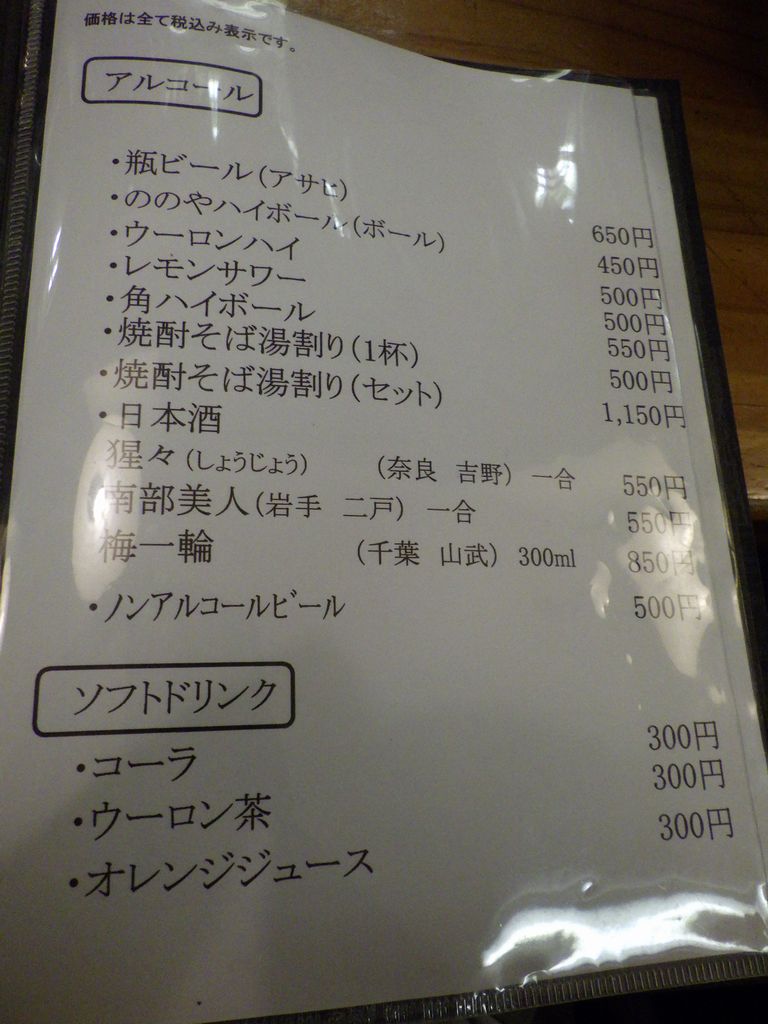 価格は全て税込み表示です。
アルコール
・瓶ビール(アサヒ) 650円
・ののやハイボール(ボール) 450円
・ウーロンハイ 500円
・レモンサワー 500円
・角ハイボール 550円
・焼酎そば湯割り(1杯) 500円
・焼酎そば湯割り(セット) 1,150円
・日本酒
猩々(しょうじょう) (奈良 吉野) 一合 550円
南部美人(岩手 二戸) 一合 550円
梅一輪 (千葉 山武) 300ml 850円
・ノンアルコールビール 500円
ソフトドリンク
・コーラ 300円
・ウーロン茶 300円
・オレンジジュース 300円